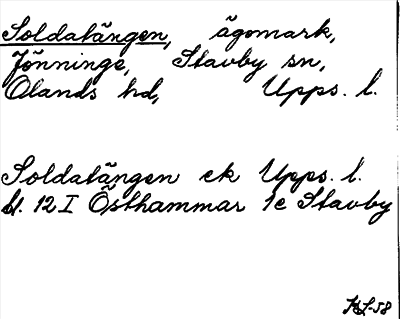 Soldatängen, ägomark,
Jönninge, Stavby sn,
Olands hd, Upps. l.
Soldatängen ek Upps. l.
bl. 12 I Östhammar 1e Stavby
HS-58